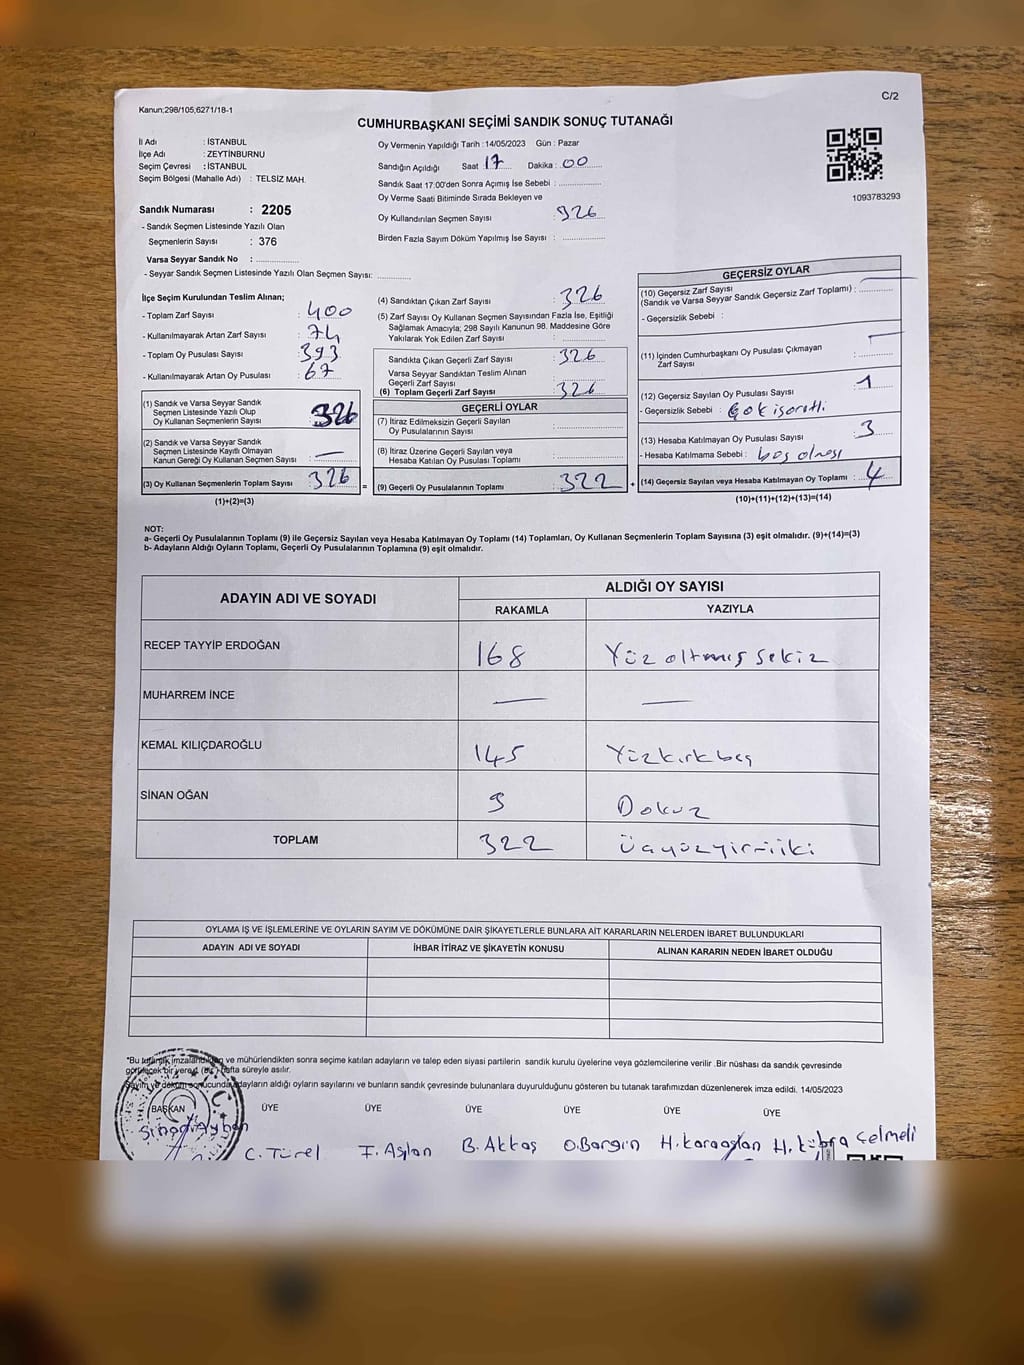 Kanun;298/105,6271/18-1
C/2
CUMHURBAŞKANI SEÇİMİ SANDIK SONUÇ TUTANAĞI
İl Adı : İSTANBUL
İlçe Adı : ZEYTİNBURNU
Seçim Çevresi : İSTANBUL
Seçim Bölgesi (Mahalle Adı) : TELSİZ MAH.
Sandık Numarası : 2205
- Sandık Seçmen Listesinde Yazılı Olan
Seçmenlerin Sayısı : 376
Varsa Seyyar Sandık No :
- Seyyar Sandık Seçmen Listesinde Yazılı Olan Seçmen Sayısı:
Oy Vermenin Yapıldığı Tarih : 14/05/2023 Gün : Pazar
Sandığın Açıldığı Saat 17 Dakika : 00
Sandık Saat 17:00'den Sonra Açılmış İse Sebebi :
Oy Verme Saati Bitiminde Sırada Bekleyen ve
Oy Kullandırılan Seçmen Sayısı : 326
Birden Fazla Sayım Döküm Yapılmış İse Sayısı :
1093783293
İlçe Seçim Kurulundan Teslim Alınan;
- Toplam Zarf Sayısı : 400
- Kullanılmayarak Artan Zarf Sayısı : 74
- Toplam Oy Pusulası Sayısı : 393
- Kullanılmayarak Artan Oy Pusulası : 67
(1) Sandık ve Varsa Seyyar Sandık
Seçmen Listesinde Yazılı Olup
Oy Kullanan Seçmenlerin Sayısı : 326
(2) Sandık ve Varsa Seyyar Sandık
Seçmen Listesinde Kayıtlı Olmayan
Kanun Gereği Oy Kullanan Seçmen Sayısı : —
(3) Oy Kullanan Seçmenlerin Toplam Sayısı : 326
(1)+(2)=(3)
(4) Sandıktan Çıkan Zarf Sayısı : 326
(5) Zarf Sayısı Oy Kullanan Seçmen Sayısından Fazla İse, Eşitliği
Sağlamak Amacıyla; 298 Sayılı Kanunun 98. Maddesine Göre
Yakılarak Yok Edilen Zarf Sayısı :
Sandıkta Çıkan Geçerli Zarf Sayısı : 326
Varsa Seyyar Sandıktan Teslim Alınan
Geçerli Zarf Sayısı :
(6) Toplam Geçerli Zarf Sayısı : 326
GEÇERLİ OYLAR
(7) İtiraz Edilmeksizin Geçerli Sayılan
Oy Pusulalarının Sayısı :
(8) İtiraz Üzerine Geçerli Sayılan veya
Hesaba Katılan Oy Pusulası Toplamı :
= (9) Geçerli Oy Pusulalarının Toplamı : 322 +
GEÇERSİZ OYLAR
(10) Geçersiz Zarf Sayısı
(Sandık ve Varsa Seyyar Sandık Geçersiz Zarf Toplamı) : —
- Geçersizlik Sebebi :
(11) İçinden Cumhurbaşkanı Oy Pusulası Çıkmayan
Zarf Sayısı : —
(12) Geçersiz Sayılan Oy Pusulası Sayısı : 1
- Geçersizlik Sebebi : Çok işaretli
(13) Hesaba Katılmayan Oy Pusulası Sayısı : 3
- Hesaba Katılmama Sebebi : boş olması
(14) Geçersiz Sayılan veya Hesaba Katılmayan Oy Toplamı : 4
(10)+(11)+(12)+(13)=(14)
NOT:
a- Geçerli Oy Pusulalarının Toplamı (9) ile Geçersiz Sayılan veya Hesaba Katılmayan Oy Toplamı (14) Toplamları, Oy Kullanan Seçmenlerin Toplam Sayısına (3) eşit olmalıdır. (9)+(14)=(3)
b- Adayların Aldığı Oyların Toplamı, Geçerli Oy Pusulalarının Toplamına (9) eşit olmalıdır.
ADAYIN ADI VE SOYADI
ALDIĞI OY SAYISI
RAKAMLA YAZIYLA
RECEP TAYYİP ERDOĞAN 168 Yüz altmış sekiz
MUHARREM İNCE — —
KEMAL KILIÇDAROĞLU 145 Yüzkırkbeş
SİNAN OĞAN 9 Dokuz
TOPLAM 322 Üçyüzyirmiiki
OYLAMA İŞ VE İŞLEMLERİNE VE OYLARIN SAYIM VE DÖKÜMÜNE DAİR ŞİKAYETLERLE BUNLARA AİT KARARLARIN NELERDEN İBARET BULUNDUKLARI
ADAYIN ADI VE SOYADI İHBAR İTİRAZ VE ŞİKAYETİN KONUSU ALINAN KARARIN NEDEN İBARET OLDUĞU
*Bu tutanak imzalandıktan ve mühürlendikten sonra seçime katılan adayların ve talep eden siyasi partilerin sandık kurulu üyelerine veya gözlemcilerine verilir .Bir nüshası da sandık çevresinde
görülecek bir yere (Bir) hafta süreyle asılır.
Sayım ve döküm sonucunda adayların aldığı oyların sayılarını ve bunların sandık çevresinde bulunanlara duyurulduğunu gösteren bu tutanak tarafımızdan düzenlenerek imza edildi. 14/05/2023
BAŞKAN ÜYE ÜYE ÜYE ÜYE ÜYE ÜYE
C. Türel F. Aslan B. Akkaş O.Bargın H.Karaaslan H.Kübra Çelmeli